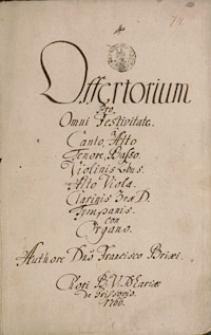 Offertorium
Pro
Omni Festivitate.
Canto, Alto
Tenore, Basso.
Violinis 2bus.
Alto Viola.
Clarinis 2 ex D.
Tympanis.
con
Organo.
Authore Dno Francisco Brixi.
Chori B. V. Mariæ
De